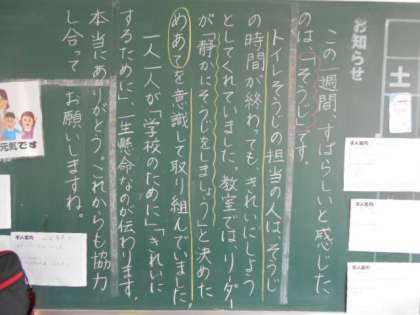 お知らせ
土
この一週間、すばらしいと感じた
のは、「そうじ」です。
トイレそうじの担当の人は、そうじ
の時間が終わっても、きれいにしよう
としてくれていました。教室では、リーダー
が「静かにそうじをしましょう」と決めた
めあてを意識して取り組んでいました。
一人一人が「学校のために」「きれいに
するために」一生懸命なのが伝わります。
本当にありがとう。これからも協力
し合って、お願いしますね。
元気です
求人案内
求人案内
求人案内
求人案内